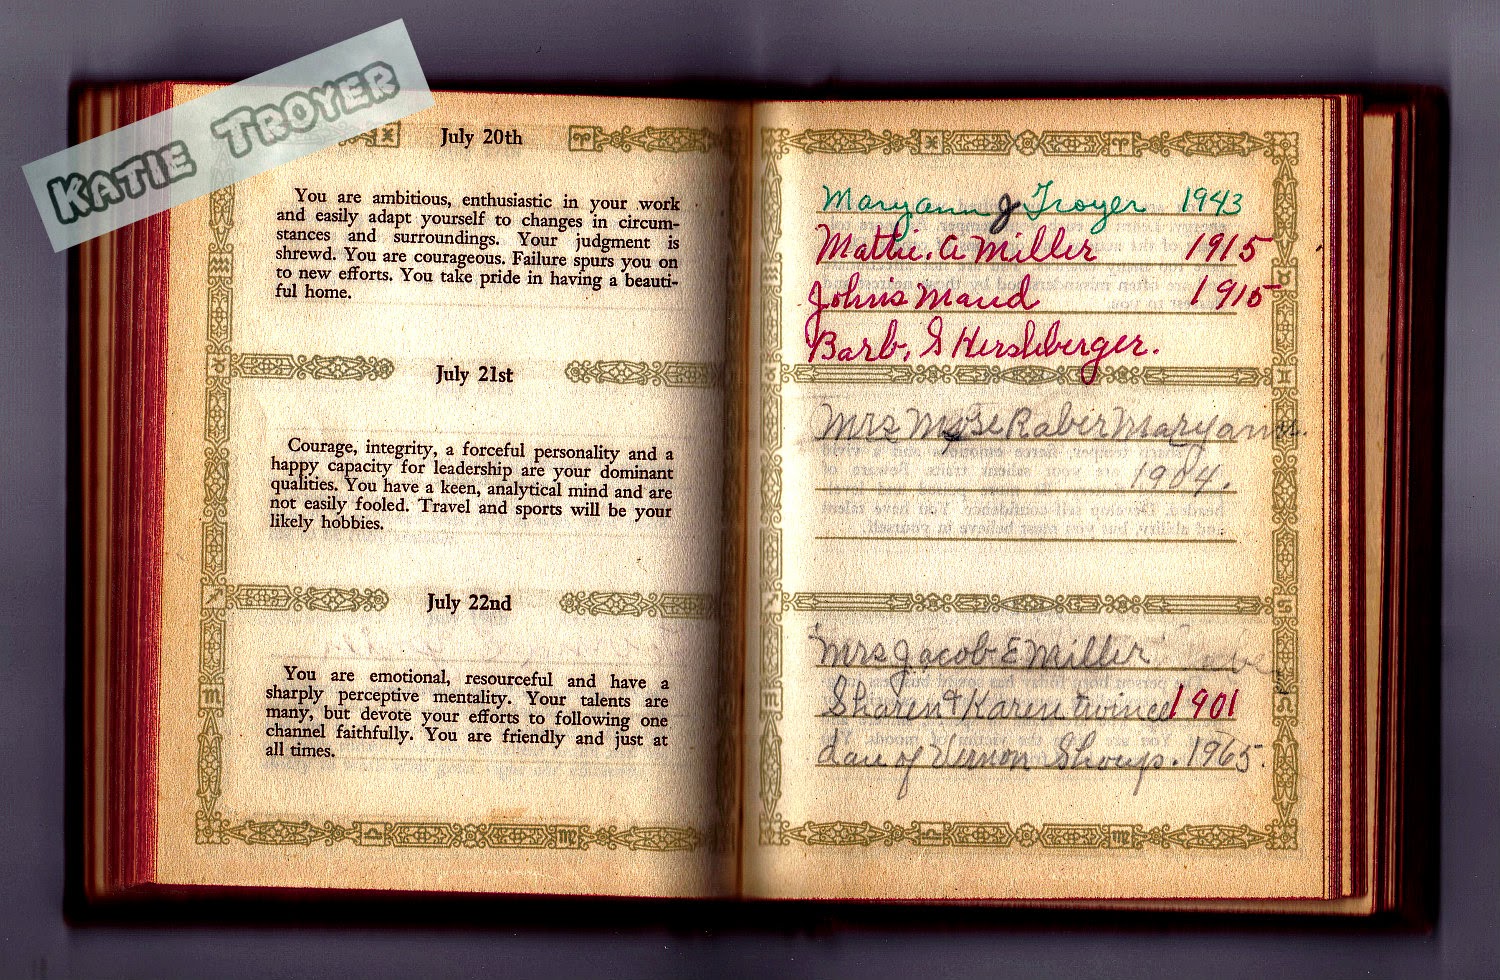 KATIE TROYER
July 20th
You are ambitious, enthusiastic in your work
and easily adapt yourself to changes in circum-
stances and surroundings. Your judgment is
shrewd. You are courageous. Failure spurs you on
to new efforts. You take pride in having a beauti-
ful home.
July 21st
Courage, integrity, a forceful personality and a
happy capacity for leadership are your dominant
qualities. You have a keen, analytical mind and are
not easily fooled. Travel and sports will be your
likely hobbies.
July 22nd
You are emotional, resourceful and have a
sharply perceptive mentality. Your talents are
many, but devote your efforts to following one
channel faithfully. You are friendly and just at
all times.
Maryann J Troyer 1943
Mattie. A Miller 1915
John's Maud 1915
Barb, S Hershberger.
Mrs Mose Raber Maryann.
1904.
Mrs Jacob E Miller
Sharen & Karen twince 1901
dau of Vernon Shoup. 1965.